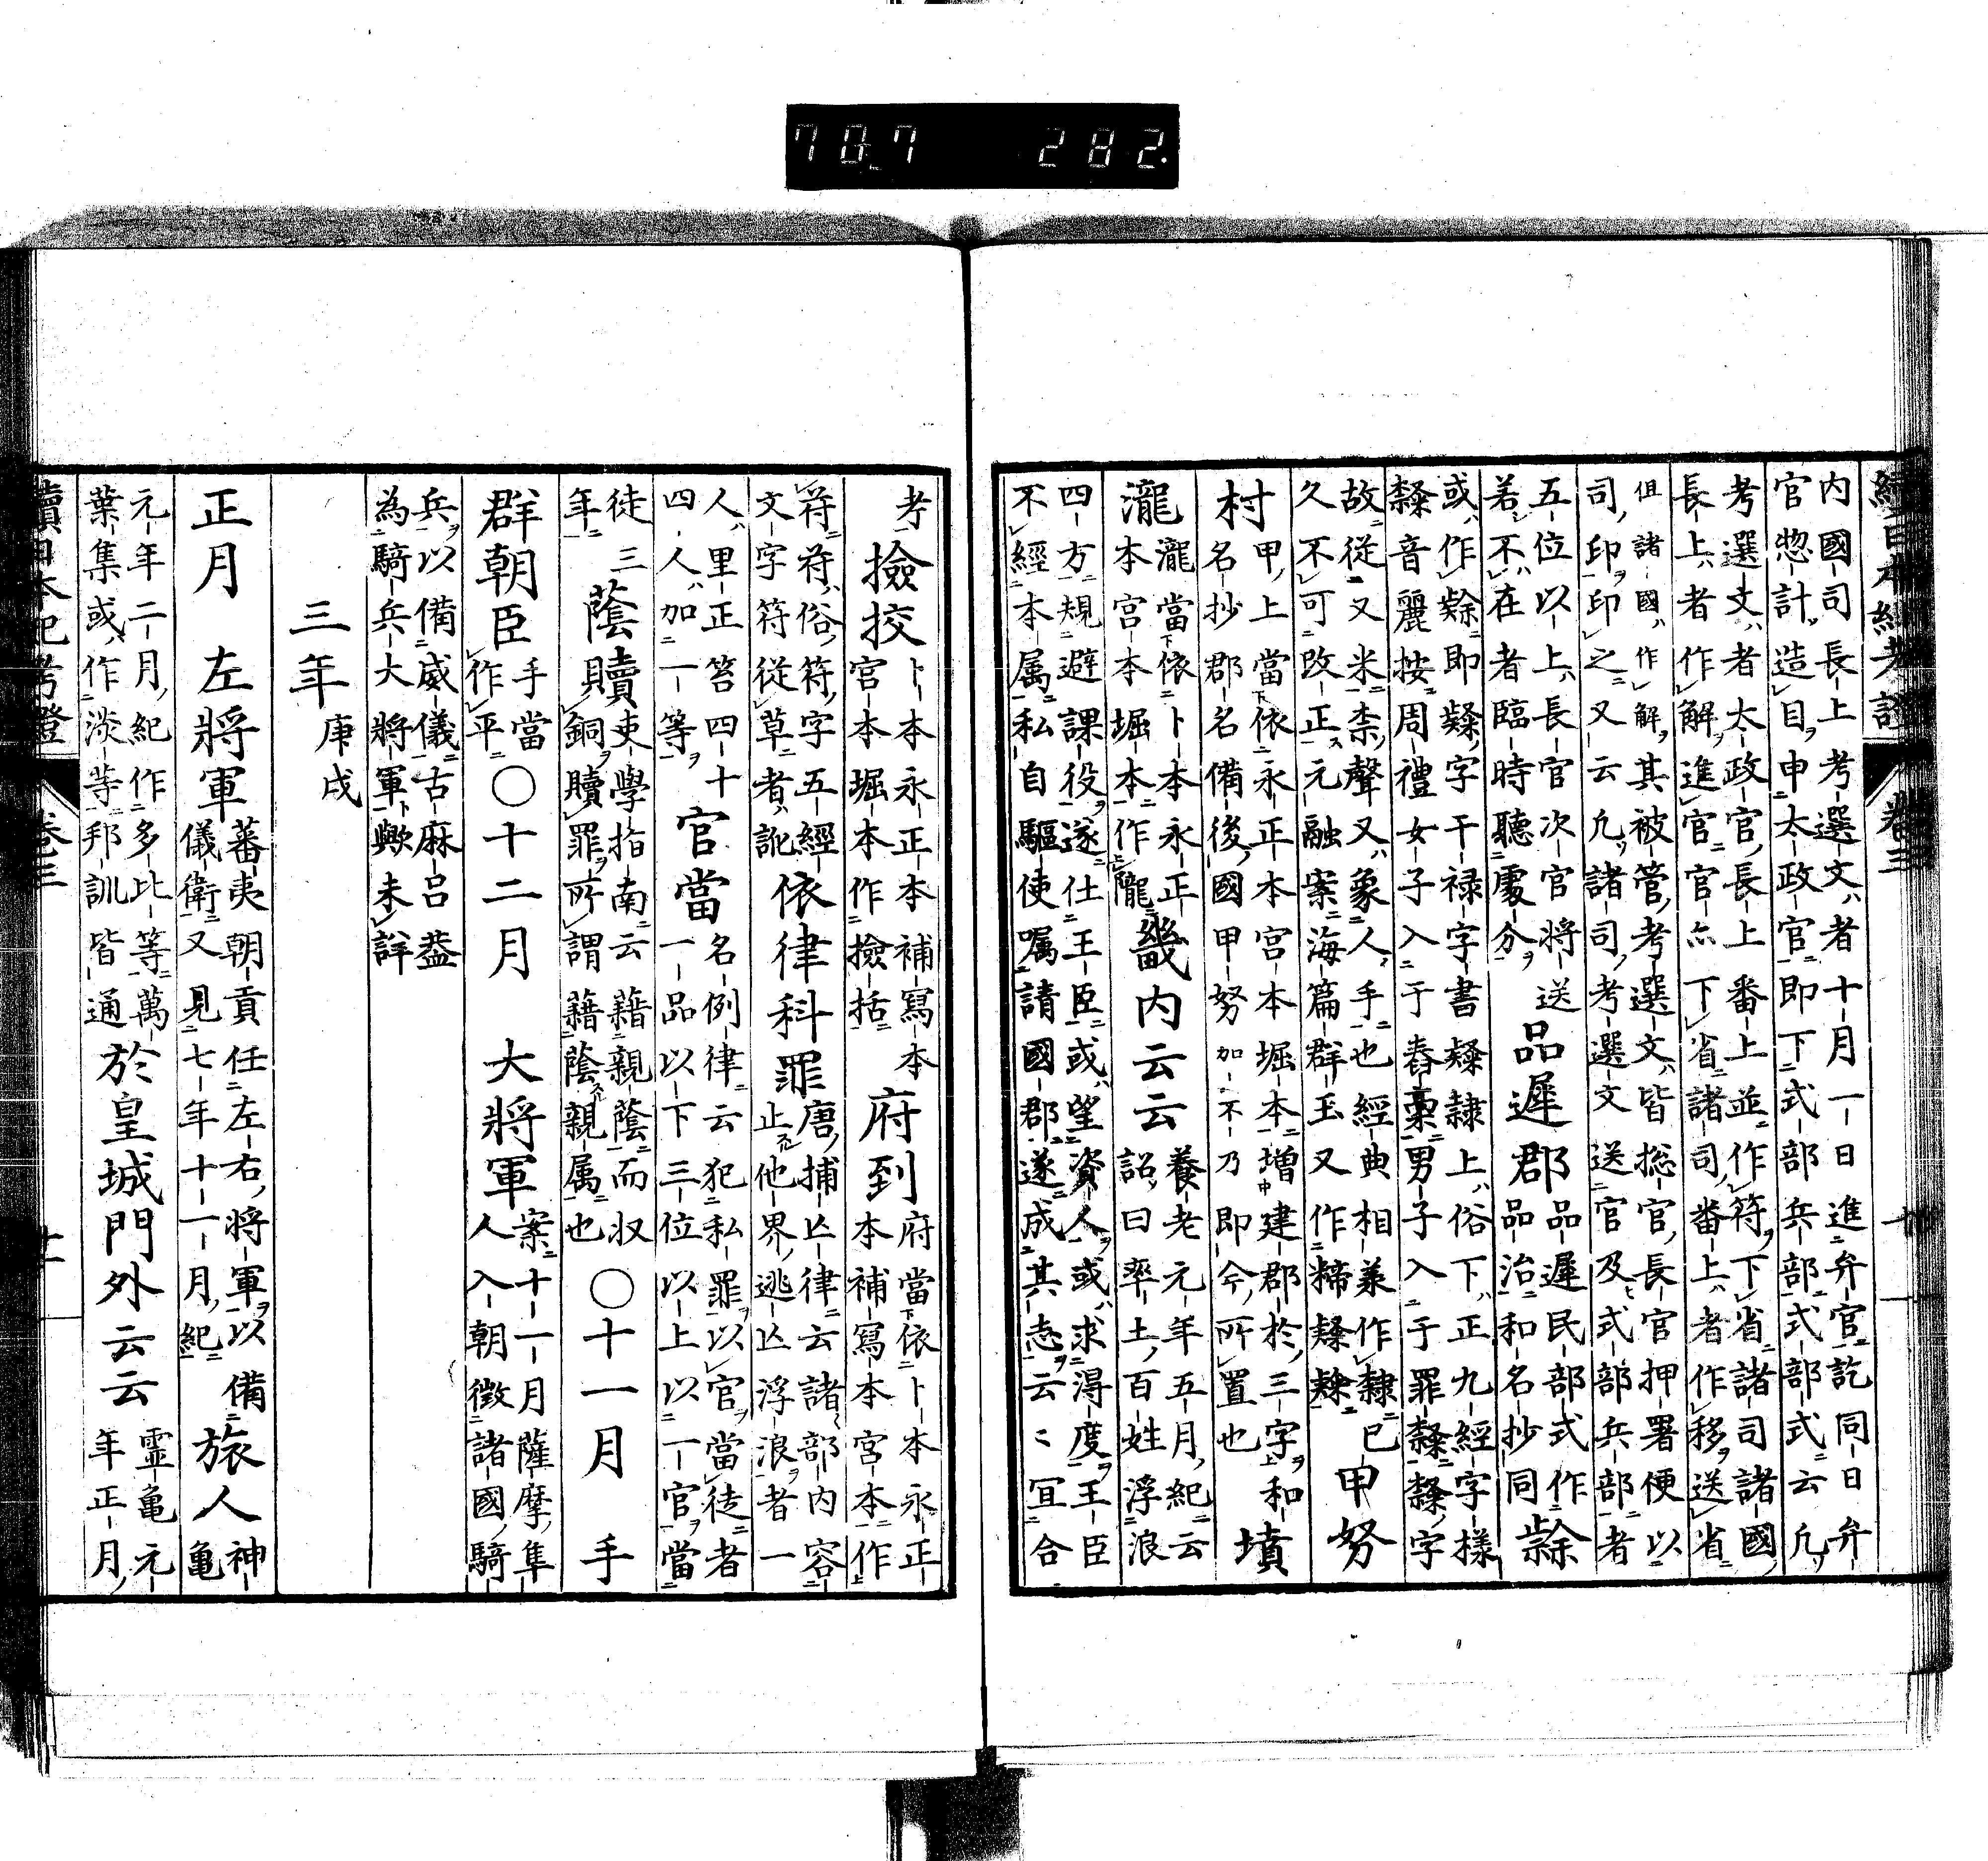 續日本紀考證 卷三 十
内國司長上考選文者十月一日進弁官訖同日弁
官惣計造目申太政官即下式部兵部式部式云凡
考選文者太政官長上番上並作符下省諸司諸國
長上者作解進官官亦下省諸司番上者作移送省
但諸國作解其被管考選文皆総官長官押署便以
司印印之又云凡諸司考選文送官及式部兵部者
五位以上長官次官將送
若不在者臨時聽處分
品遲郡
品遲民部式作
品治和名抄同
或作即字干禄字書隷上俗下正九經字樣
音麗按周禮女子入于舂藁男子入于罪字
故從又米柰聲又象人手也經典相兼作隸已
久不可改正元融案海篇群玉又作
甲努
村
甲上當依永正本宮本堀本增建郡於三字和
名抄郡名備後國甲努加不乃即今所置也
墳
瀧
瀧當依卜本永正
本宮本堀本作隴
畿内云云
養老元年五月紀云
詔曰率土百姓浮浪
四方規避課役遂仕王臣或望資人或求得度王臣
不經本属私自驅使嘱請國郡遂成其志云〻宜合
考
撿挍
卜本永正本補寫本
宮本堀本作撿括
府到
府當依卜本永正
本補寫本宮本作
符符俗符字五經
文字符從草者訛
依律科罪
唐捕亡律云諸部内容
止他界逃亡浮浪者一
人里正笞四十
四人加一等
官當
名例律云犯私罪以官當徒者
一品以下三位以上以一官當
徒三
年
蔭贖
吏學指南云藉親蔭而収
銅贖罪所謂藉蔭親属也
○十一月 手
群朝臣
手當
作平
○十二月 大將軍
案十一月薩摩隼
人入朝徴諸國騎
兵以備威儀古麻呂葢
為騎兵大將軍歟未詳
三年庚戌
正月 左將軍
蕃夷朝貢任左右將軍以備
儀衛又見七年十一月紀
旅人
神
亀
元年二月紀作多比等萬
葉集或作淡等邦訓皆通
於皇城門外云云
靈亀元
年正月
續日本紀考證 卷三 十一
707 282